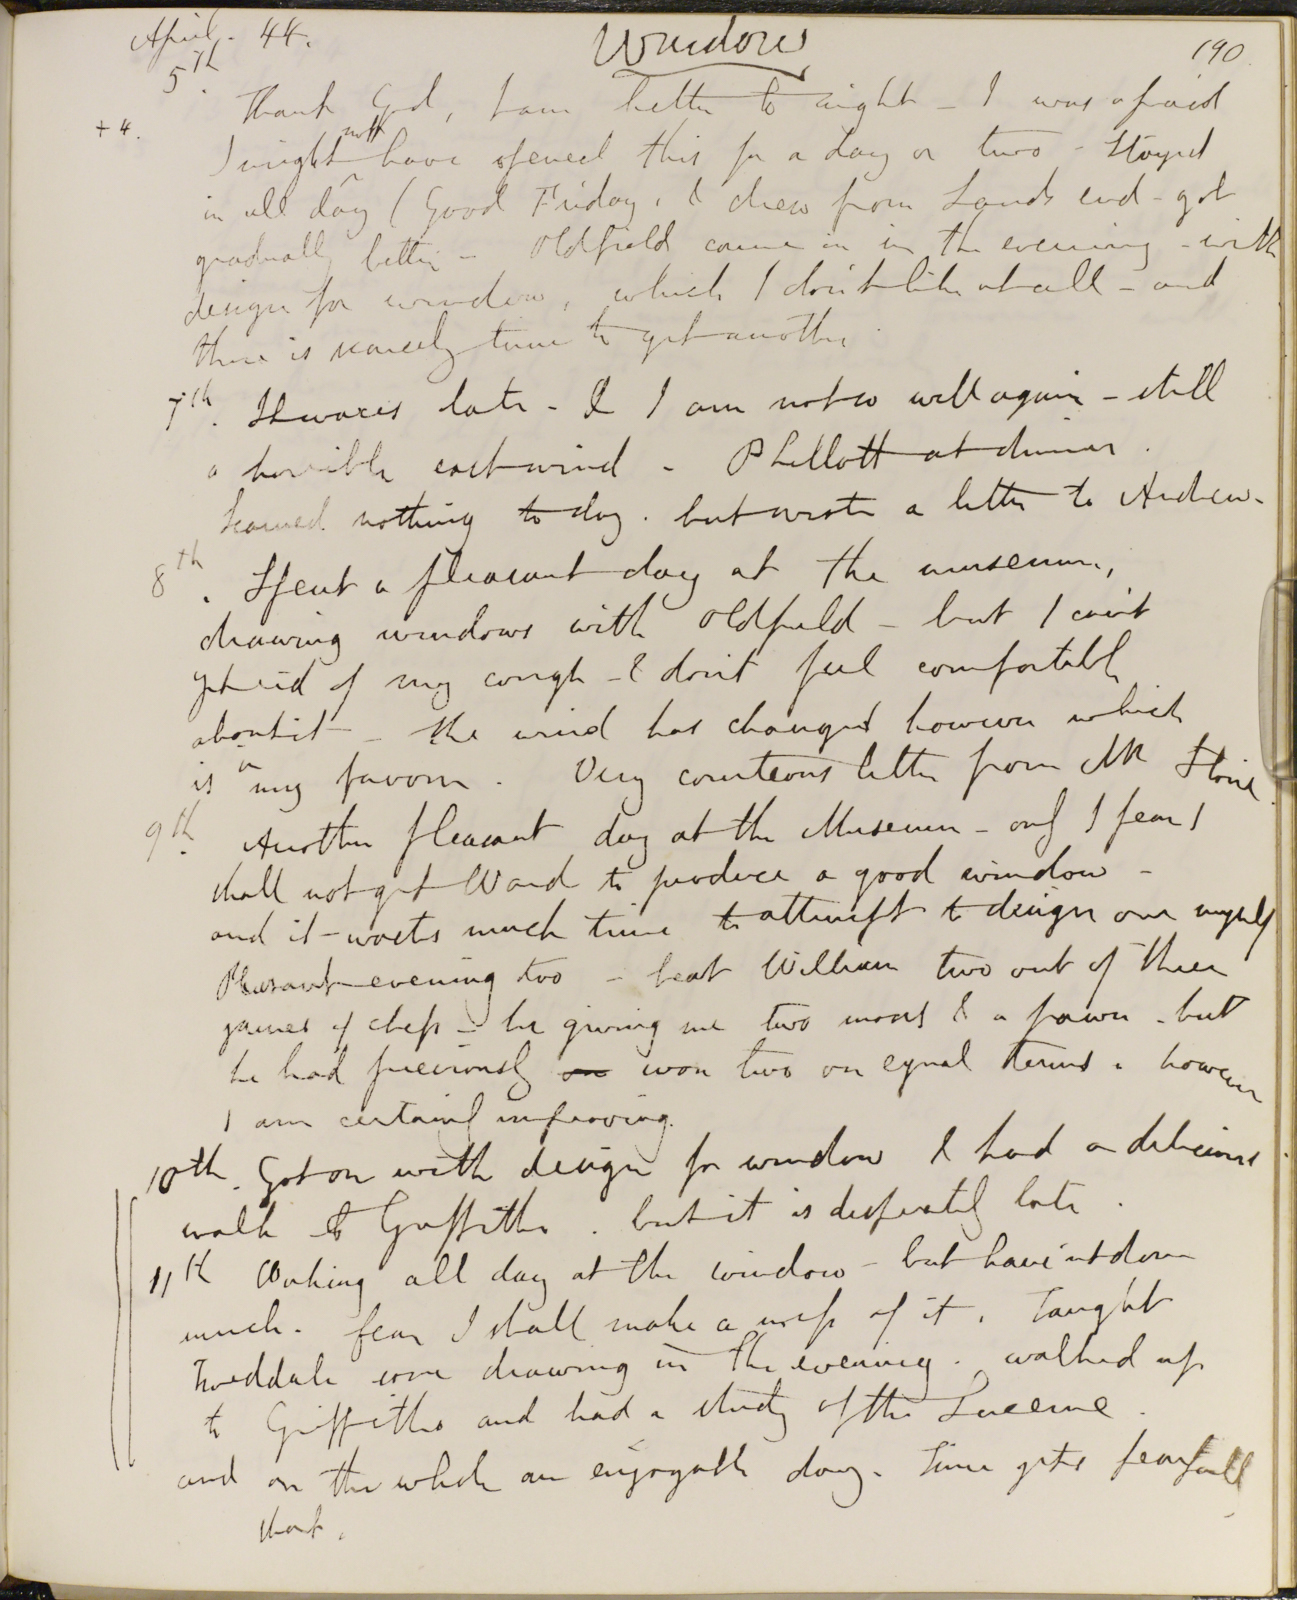 April. 44. Windows 190.
5th
+ 4. Thank God, I am better to night - I was afraid
not
I might ^ have opened this for a day or two - Stayed
in all day (Good Friday, & drew from Lands end - got
gradually better - Oldfield came in in the evening - with
design for window, which I don't like at all - and
there is scarcely time to get another.
7th. It waxes late - & I am not so well again - still
a horrible east wind - Phillott at dinner.
Learned nothing to day. but wrote a letter to Andrew.
8th. Spent a pleasant day at the museum,
drawing windows with Oldfield - but I can't
get rid of my cough - & don't feel comfortable
about it - the wind has changed however which
is in my favour. Very courteous letter from Mr Stone.
9th. Another pleasant day at the Museum - only I fear I
shall not get Ward to produce a good window -
and it wants much time to attempt to design one myself
Pleasant evening too - beat William two out of three
games of chess - he giving me two moves & a pawn - but
he had previously on won two on equal terms. however
I am certainly improving.
10th. Got on with design for window & had a delicious
walk to Griffiths. but it is desperately late.
11th Working all day at the window - but haven't done
much. fear I shall make a mess of it. Taught
Tweddale some drawing in the evening. walked up
to Griffiths and had a study of the Lucerne.
and on the whole an enjoyable day. Time gets fearfully
short.